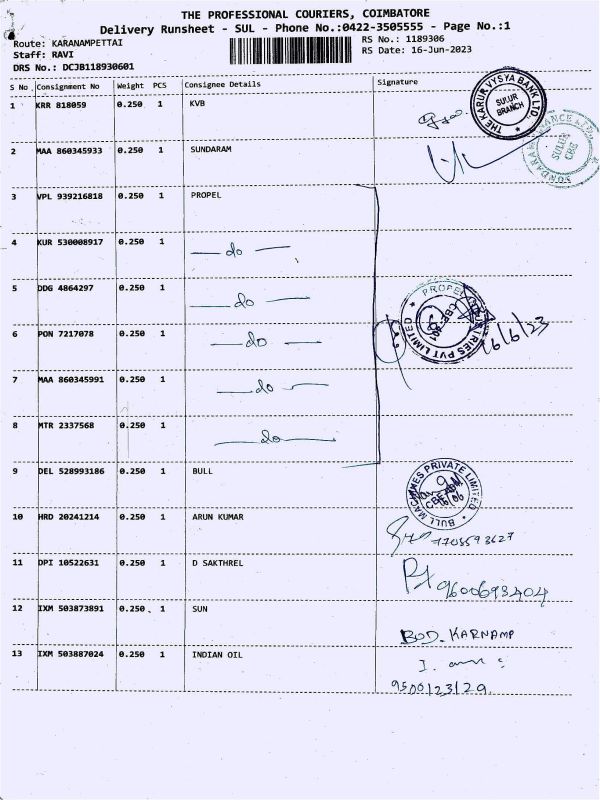 THE PROFESSIONAL COURIERS, COIMBATORE
Delivery Runsheet - SUL - Phone No.:0422-3505555 - Page No.:1
Route: KARANAMPETTAI
Staff: RAVI
DRS No.: DCJB118930601
RS No.: 1189306
RS Date: 16-Jun-2023
S No. Consignment No Weight PCS Consignee Details Signature
1 KRR 818059 0.250 1 KVB
THE KARUR VYSYA BANK LTD.
SULUR
BRANCH
2 MAA 860345933 0.250 1 SUNDARAM
SULUR
CBE
3 VPL 939216818 0.250 1 PROPEL
4 KUR 530008917 0.250 1 do
5 DDG 4864297 0.250 1 do
PROPEL INDUSTRIES PVT LIMITED
16/6/23
6 PON 7217078 0.250 1 do
7 MAA 860345991 0.250 1 do
8 MTR 2337568 0.250 1 do
9 DEL 528993186 0.250 1 BULL
BULL MACHINES PRIVATE LIMITED
10 HRD 20241214 0.250 1 ARUN KUMAR
7708593627
11 DPI 10522631 0.250 1 D SAKTHREL
9600693404
12 IXM 503873891 0.250 1 SUN
BOD. KARNAMP
13 IXM 503887024 0.250 1 INDIAN OIL
9500123129